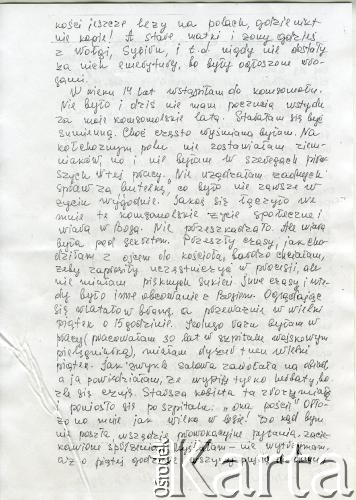 kości jeszcze leży na polach, gdzie nikt
nie kopie! A stare matki i żony gdzieś
z Wołgi, Sybiru, i t.d nigdy nie dostały
za nich emerytury, bo były ogłoszone wro-
gami.
W wieku 14 lat wstąpiłam do komsomołu.
Nie było i dziś nie mam poczucia wstydu
za moje komsomolskie lata. Starałam się być
sumienną. Choć często wyśmiana byłam. Na
kołchoznym polu nie zostawiałam ziem-
niaków, no i nie byłam w szeregach pierw-
szych w tej pracy. Nie urządzałam żadnych
spraw za butelkę, co było nie zawsze w
życiu wygodnie. Jakoś się łączyło we
mnie te komsomolskie życie społeczne i
wiara w Boga. Nie przeszkadzało. Ale wiara
była pod sekretem. Przeszły czasy, jak cho-
dziłam z ojcem do kościoła, bardzo chciałam,
żeby zaprosiły uczestniczyć w procesji, ale
nie miałam pięknych sukien. Inne czasy i wte-
dy było inne obcowanie z Bogiem. Oglądając
się wlatało w bramę, a przeważnie w wielki
piątek o 15 godzinie. Jednego razu byłam w
pracy (pracowałam 30 lat w szpitalu wojskowym
pielęgniarką), miałam dyżur i w wielki
piątek. Jak zwykle salowa zawołała na obiad
a ja powiedziałam, że wypiję tylko herbatę, bo
źle się czuję. Starsza kobieta ta zrozumiała
i poniosło się po szpitalu: „ona pości!” Oto-
czono mnie jak wilka w lesie! Do kąd bym
nie poszła wszędzie prowokacyjne pytania, zacie-
kawione spojrzenia. Myślałam – nie wytrzymam,
aż o piątej godzinie
ośrodek
Karta